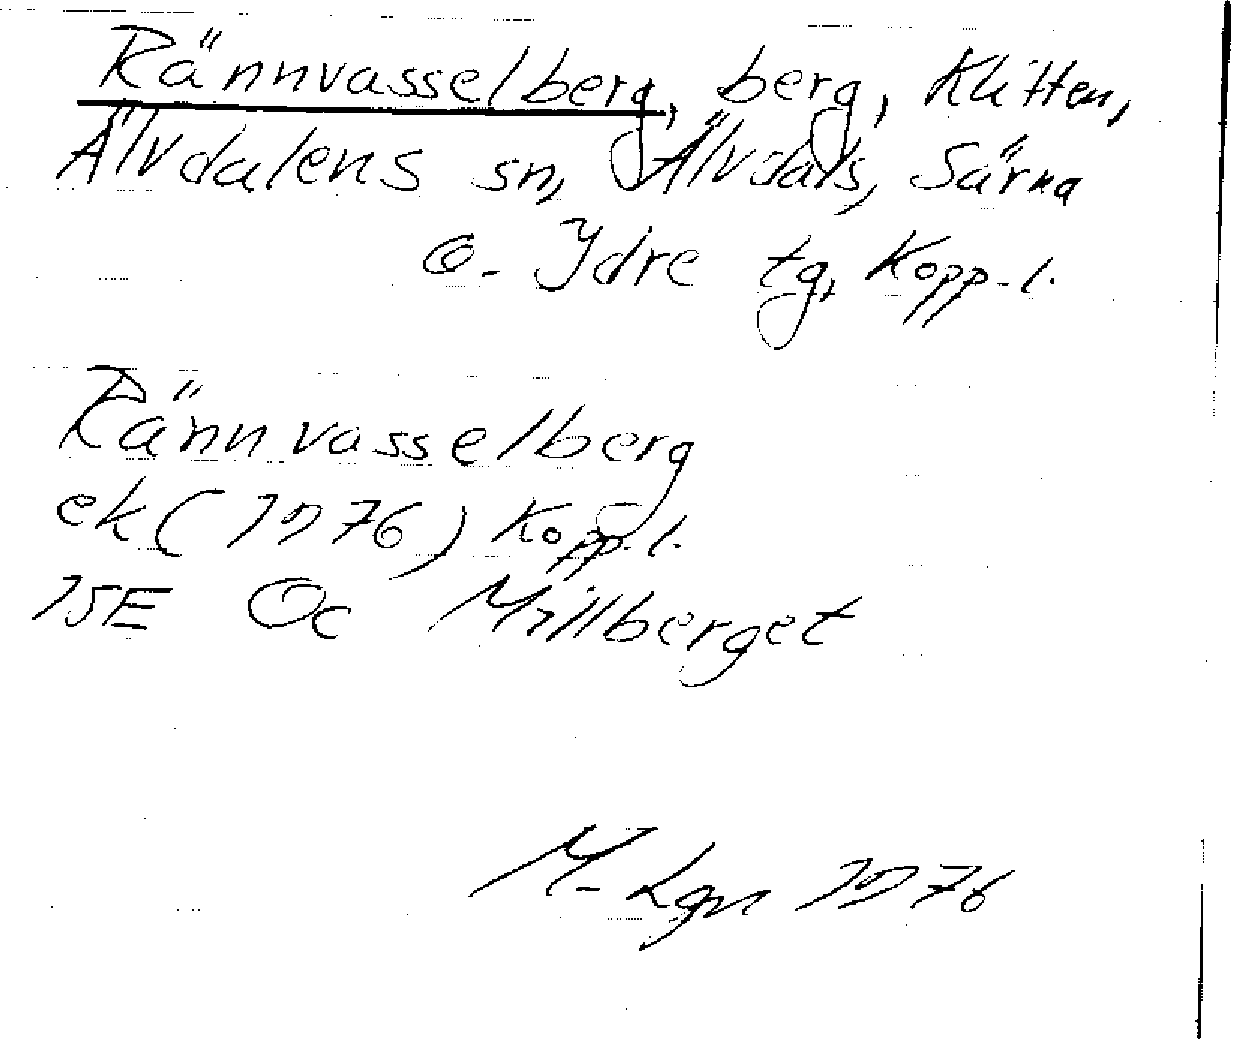 Rännvasselberg, berg, Klitten,
Älvdalens sn, Älvdals, Särna
o. Idre tg, Kopp. l.
Rännvasselberg
ek (1976) Kopp. l.
15E Oc Millberget
M. Lgn 1976